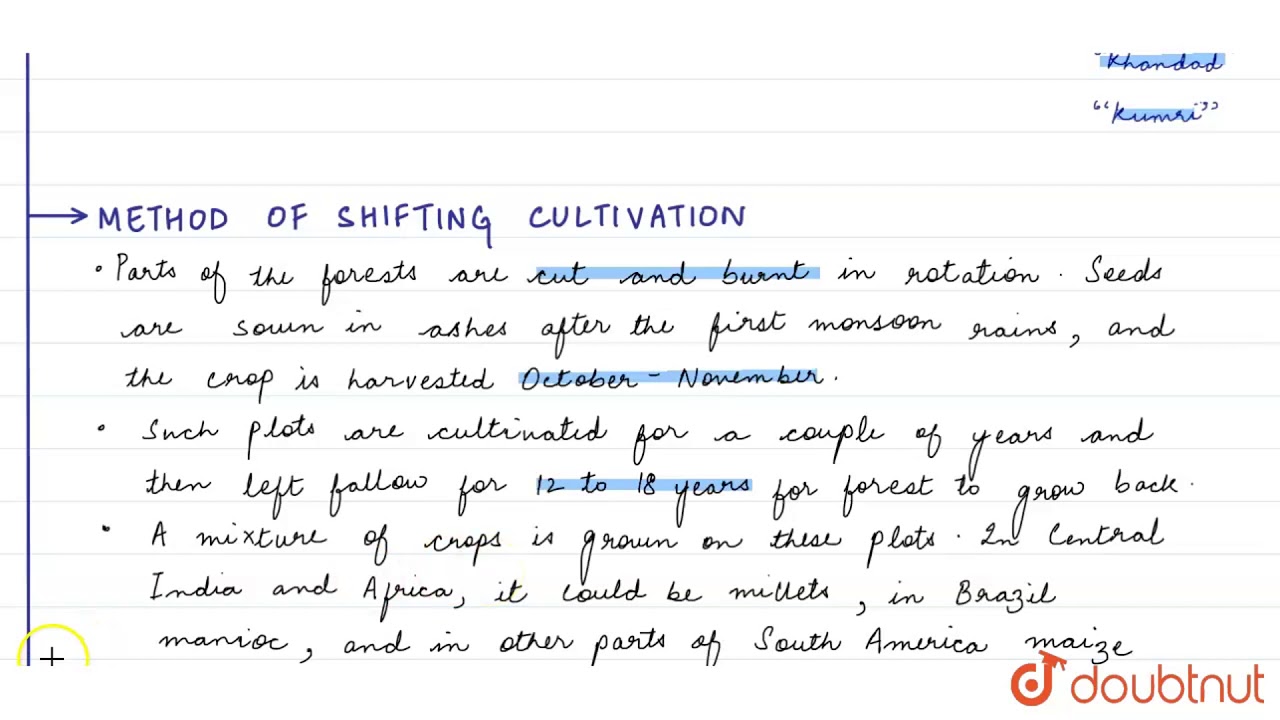 "Khandad
"Kumri"
METHOD OF SHIFTING CULTIVATION
• Parts of the forests are cut and burnt in rotation. Seeds
are sown in ashes after the first monsoon rains, and
the crop is harvested October - November.
• Such plots are cultivated for a couple of years and
then left fallow for 12 to 18 years for forest to grow back.
• A mixture of crops is grown on these plots. In Central
India and Africa, it could be millets, in Brazil
manioc, and in other parts of South America maize
doubtnut